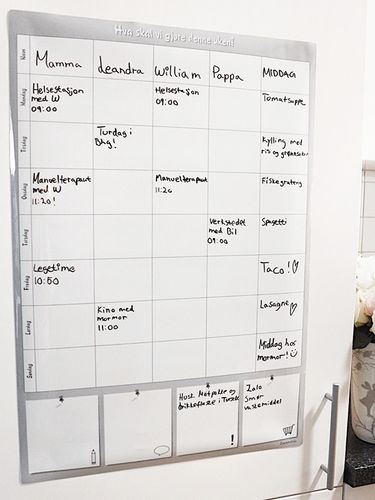 Hva skal vi gjøre denne uken?
Navn
Mamma Leandra William Pappa MIDDAG
Mandag
Helsestasjon
med W
09:00
Helsestasjon
09:00
Tomatsuppe
Tirsdag
Turdag i
Bhg!
Kylling med
ris og grønnsaker
Onsdag
Manuelterapeut
med W
11:20!
Manuelterapeut
11:20
Fiskegrateng
Torsdag
Verkstedet
med Bil
09:00
Spagetti
Fredag
Legetime
10:50
Taco!
Lørdag
Kino med
mormor
11:00
Lasagne
Søndag
Middag hos
mormor!
Husk Matpakke og
drikkeflaske i Tursekk
!
Zalo
Smør
vaskemiddel